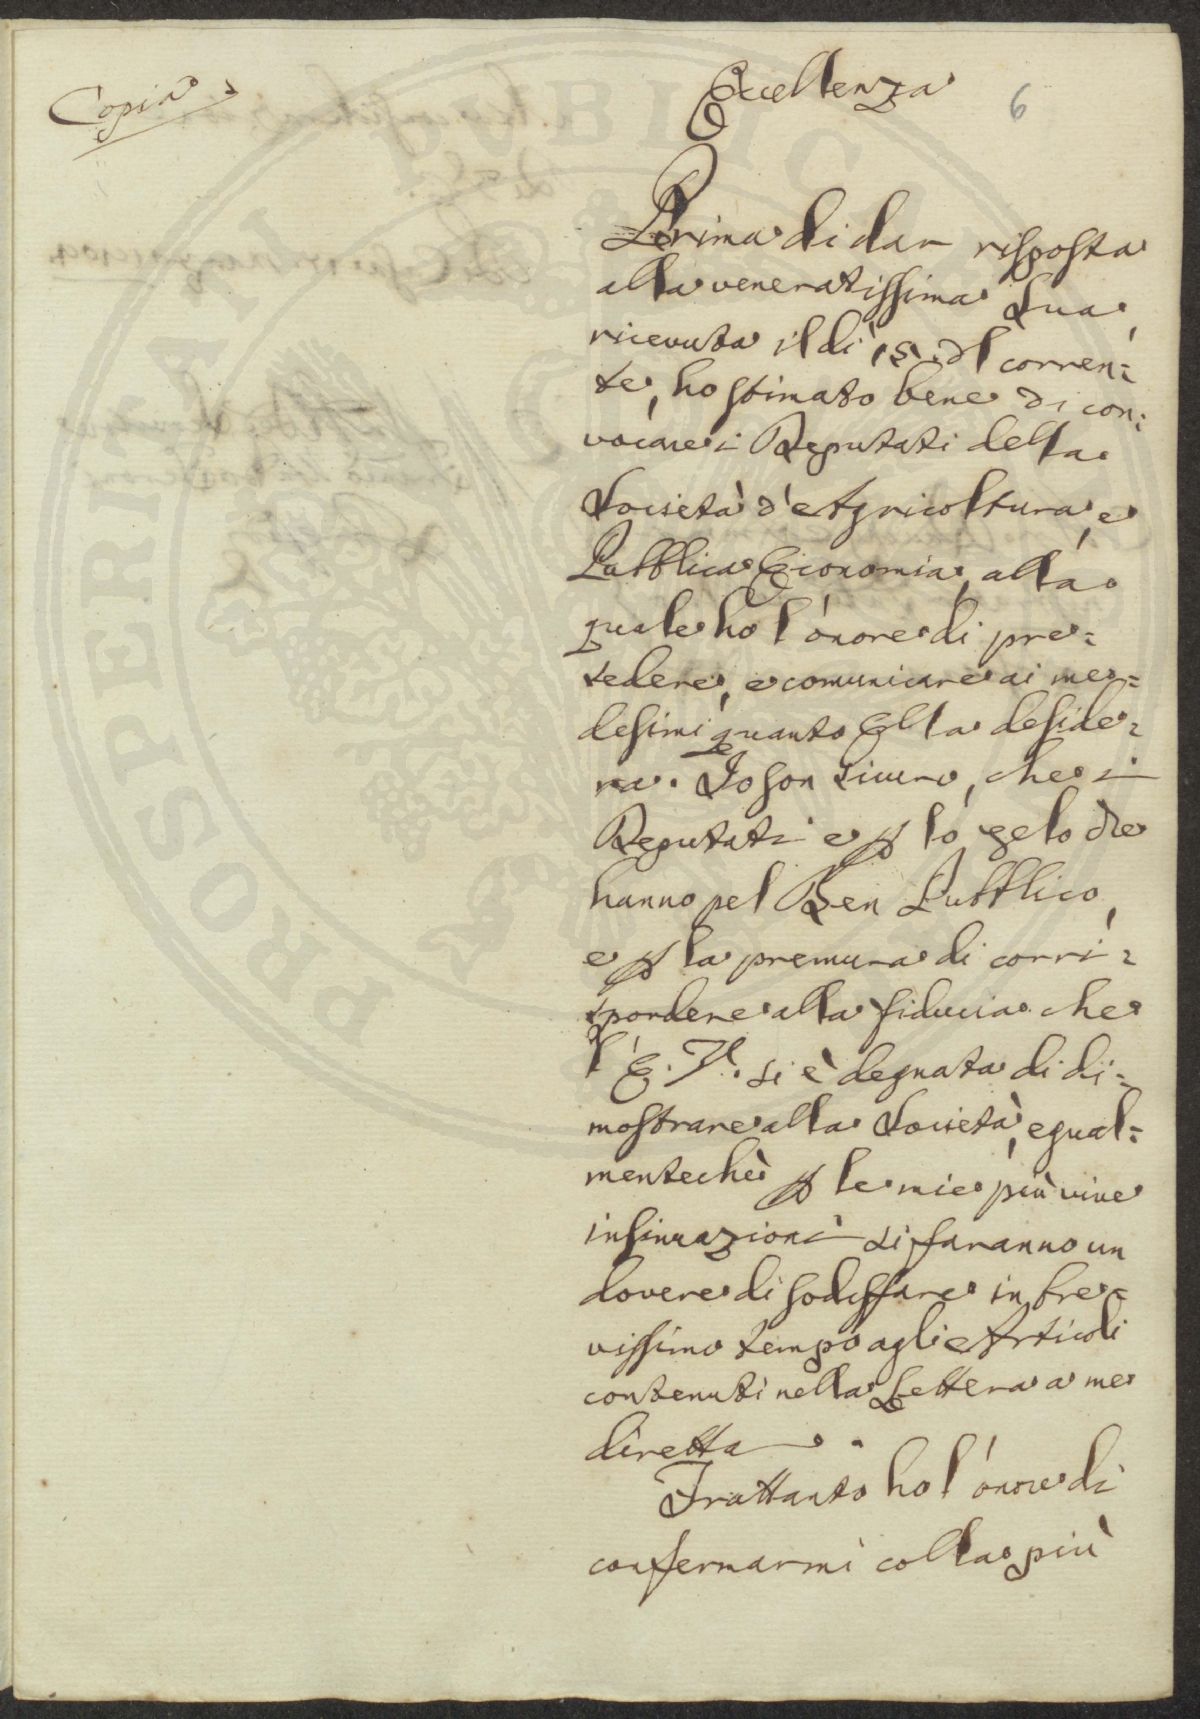 Copia
Eccellenza
6
Prima di dar risposta
alla veneratissima Sua,
ricevuta il dì 15. del corren:
te, ho stimato bene di con:
vocare i Deputati della
Società d'Agricoltura, e
Pubblica Economia, alla
quale ho l'onore di pre:
sedere, e comunicare ai me:
desimi quanto Ella deside:
ra. Io son sicuro, che i
Deputati e p lo zelo che
hanno pel Ben Pubblico,
e p la premura di corri:
spondere alla fiducia che
l'E. V. si è degnata di di:
mostrare alla Società, egual:
mentechè p le mie più vive
insinuazioni si faranno un
dovere di sodisfare in bre:
vissimo tempo agli Articoli
contenuti nella Lettera a me
diretta.
Frattanto ho l'onore di
confermarmi colla più
PROSPERITATI PUBLICAE